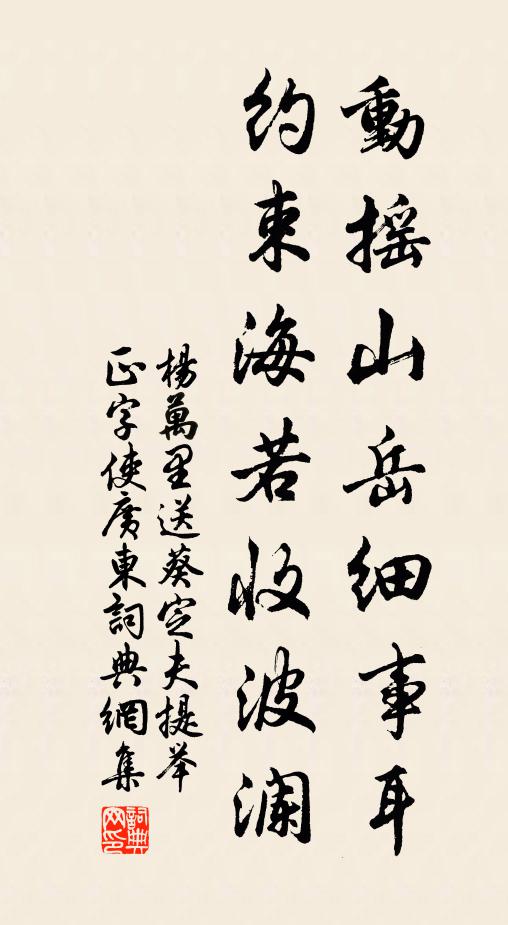 動摇山岳細事耳
約束海若收波澜
楊萬里送葵定夫提举
正字使廣東詞典網集
詞典网印